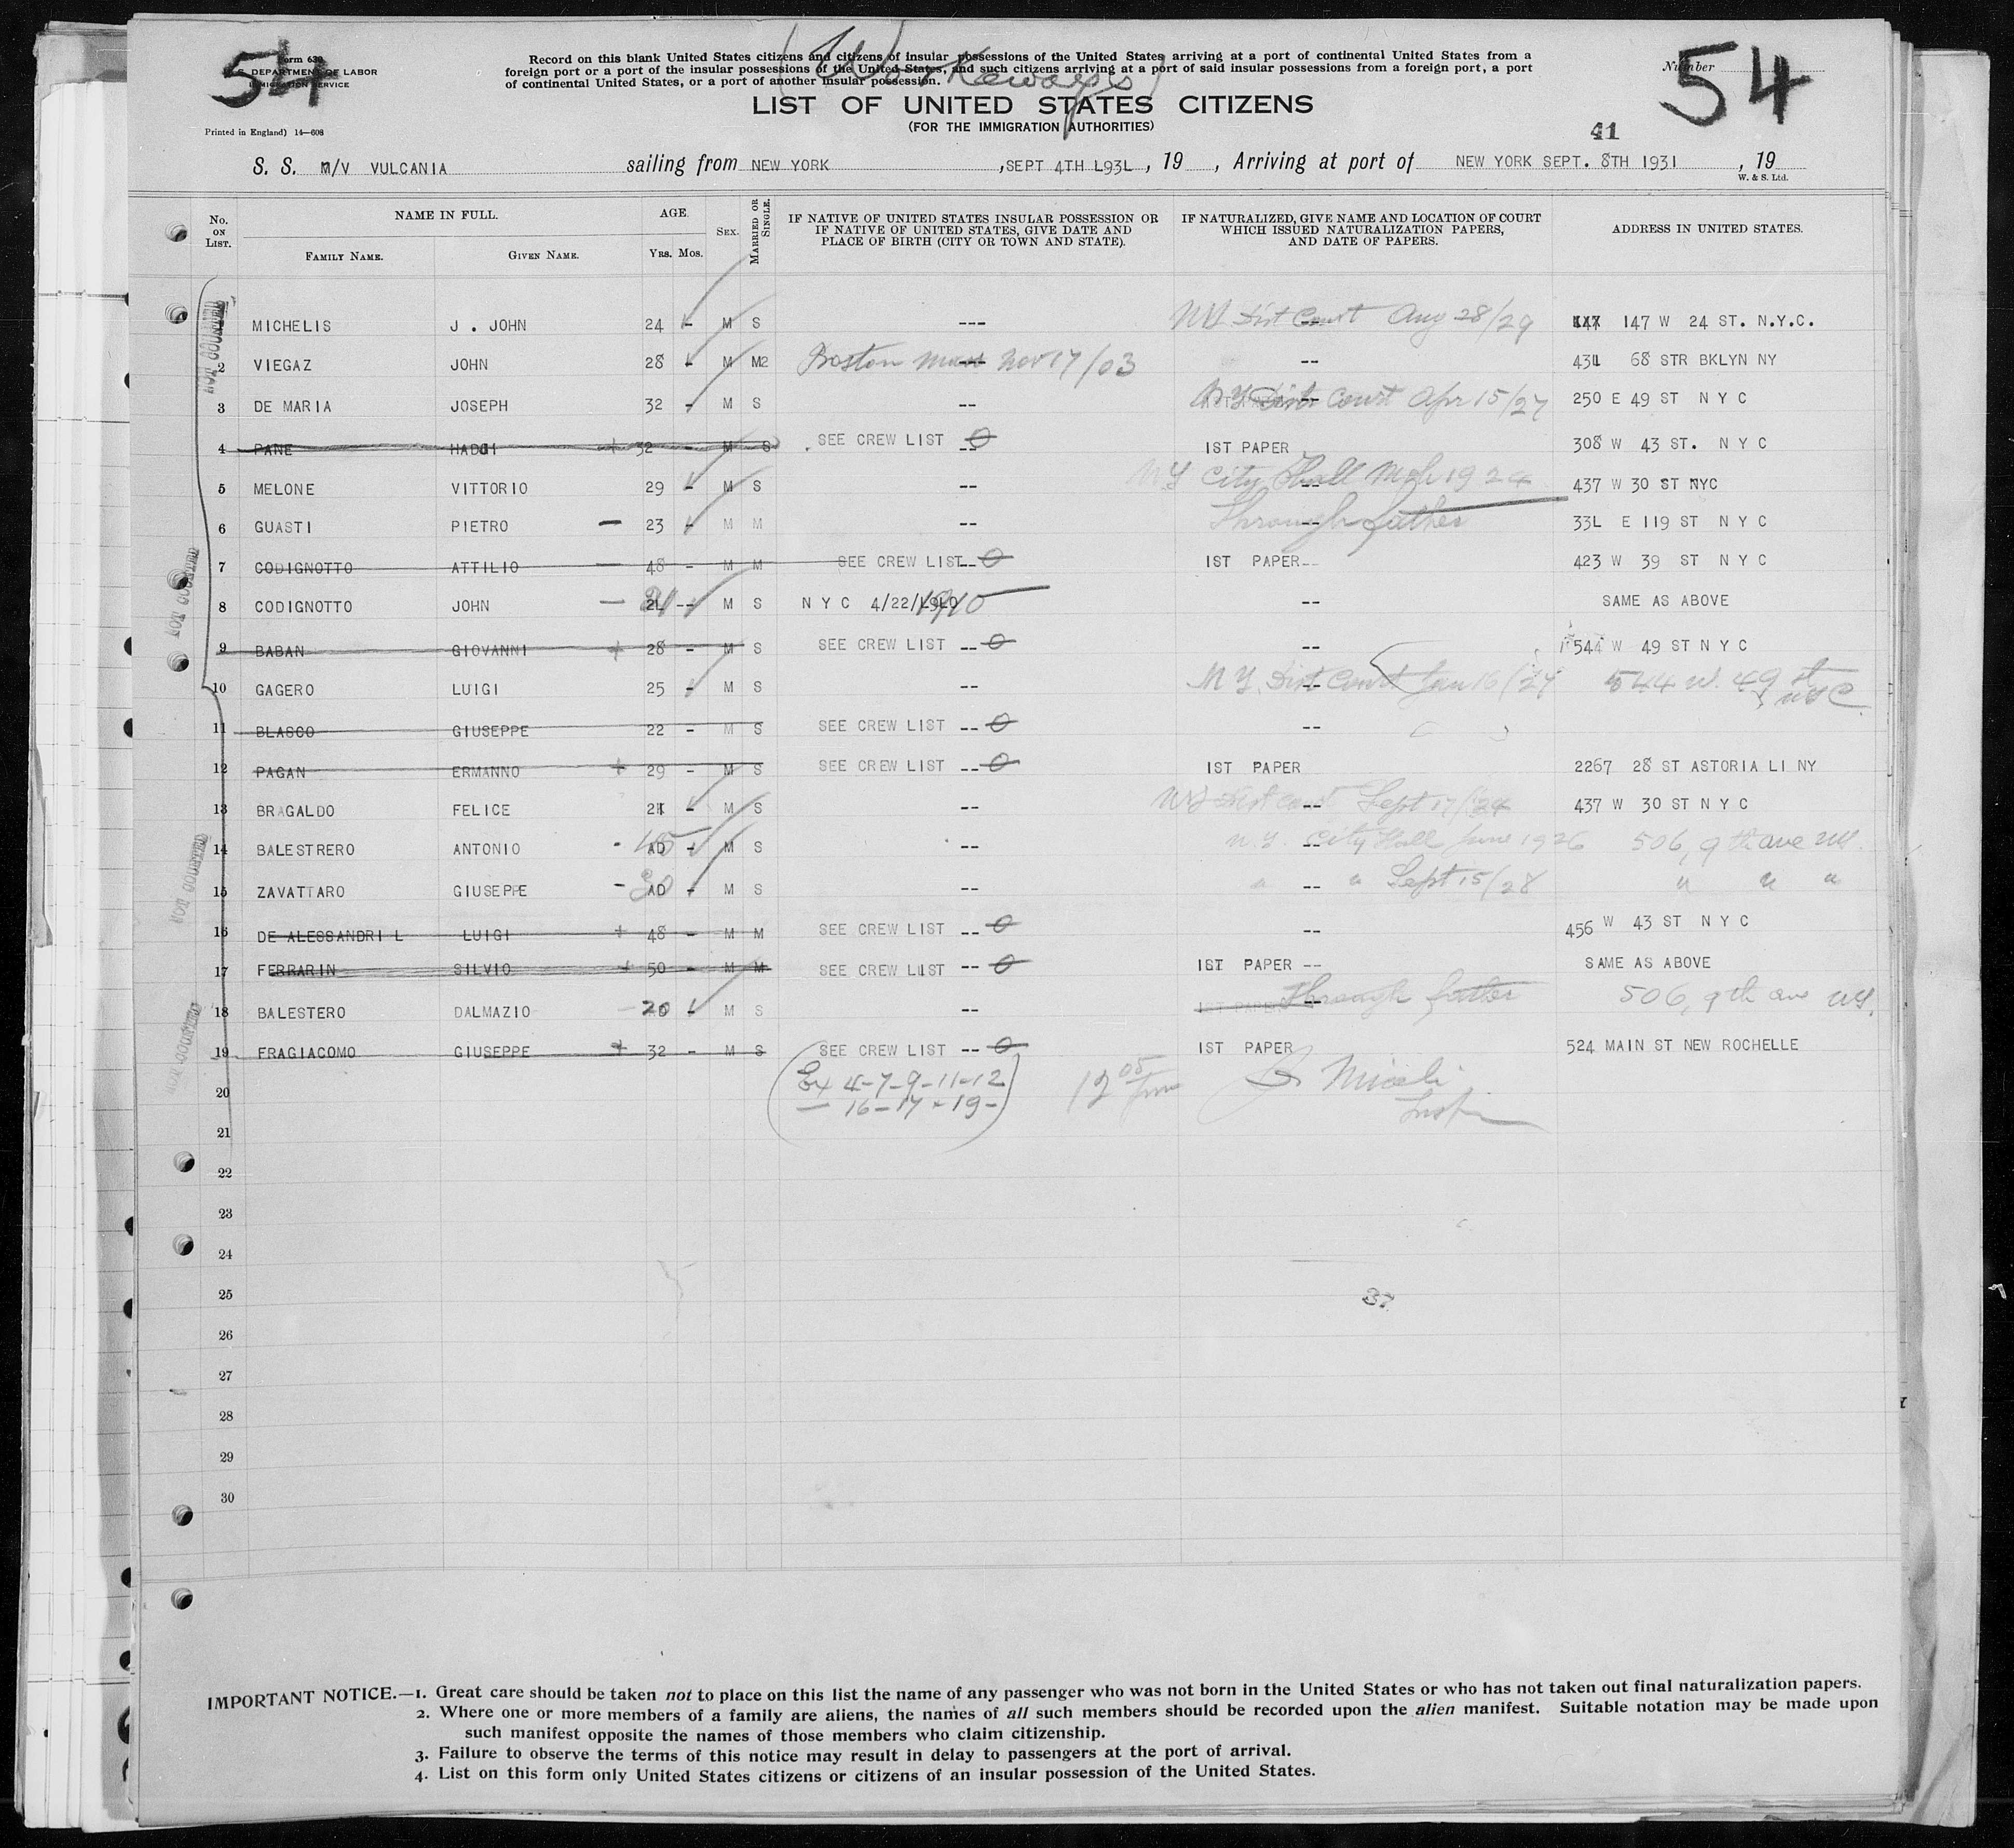 54
Form 630
U. S. DEPARTMENT OF LABOR
IMMIGRATION SERVICE
Printed in England) 14—608
Record on this blank United States citizens and citizens of insular possessions of the United States arriving at a port of continental United States from a
foreign port or a port of the insular possessions of the United States, and such citizens arriving at a port of said insular possessions from a foreign port, a port
of continental United States, or a port of another insular possession.
LIST OF UNITED STATES CITIZENS
(FOR THE IMMIGRATION AUTHORITIES)
Number
54
41
S. S. M/V VULCANIA sailing from NEW YORK , SEPT 4TH L93L , 19 , Arriving at port of NEW YORK SEPT. 8TH 1931 , 19
W. & S. Ltd.
No. ON LIST. NAME IN FULL. FAMILY NAME. GIVEN NAME. AGE. YRS. MOS. SEX. MARRIED OR SINGLE. IF NATIVE OF UNITED STATES INSULAR POSSESSION OR IF NATIVE OF UNITED STATES, GIVE DATE AND PLACE OF BIRTH (CITY OR TOWN AND STATE). IF NATURALIZED, GIVE NAME AND LOCATION OF COURT WHICH ISSUED NATURALIZATION PAPERS, AND DATE OF PAPERS. ADDRESS IN UNITED STATES.
MICHELIS J . JOHN 24 - M S --- NY Dist Court Aug 28/29 147 W 24 ST. N.Y.C.
2 VIEGAZ JOHN 28 - M M2 Boston Mass Nov 17/03 -- 431 68 STR BKLYN NY
3 DE MARIA JOSEPH 32 - M S -- NY Dist Court Apr 15/27 250 E 49 ST N Y C
4 PANE HADGI + 32 - M S SEE CREW LIST -- 0 1ST PAPER 308 W 43 ST. N Y C
5 MELONE VITTORIO 29 - M S -- NY City Hall Mch 1924 437 W 30 ST NYC
6 GUASTI PIETRO - 23 - M M -- Through father 33L E 119 ST N Y C
7 CODIGNOTTO ATTILIO - 48 - M M SEE CREW LIST -- 0 1ST PAPER -- 423 W 39 ST N Y C
8 CODIGNOTTO JOHN - 21 -- M S N Y C 4/22/1910 -- SAME AS ABOVE
9 BABAN GIOVANNI + 28 - M S SEE CREW LIST -- 0 -- 544 W 49 ST N Y C
10 GAGERO LUIGI 25 - M S -- N Y Dist Court Jan 16/27 544 W. 49 st NYC
11 BLASCO GIUSEPPE 22 - M S SEE CREW LIST -- 0 --
12 PAGAN ERMANNO + 29 - M S SEE CREW LIST -- 0 1ST PAPER 2267 28 ST ASTORIA LI NY
13 BRAGALDO FELICE 24 - M S -- NY Dist Court Sept 17/24 437 W 30 ST N Y C
14 BALESTRERO ANTONIO - 45 AD - M S -- N.Y. City Hall June 1926 506, 9th ave NY.
15 ZAVATTARO GIUSEPPE - 30 AD - M S -- " " Sept 15/28 " " "
16 DE ALESSANDRI L LUIGI + 48 - M M SEE CREW LIST -- 0 -- 456 W 43 ST N Y C
17 FERRARIN SILVIO + 50 - M M SEE CREW LIST -- 0 1ST PAPER -- SAME AS ABOVE
18 BALESTERO DALMAZIO - 20 - M S -- 1ST PAPER Through father 506, 9th ave NY.
19 FRAGIACOMO GIUSEPPE + 32 - M S SEE CREW LIST -- 0 1ST PAPER 524 MAIN ST NEW ROCHELLE
20 Ex 4-7-9-11-12
— 16-17-19-
12 05 pm
Insp
21
22
23
24
25
37
26
27
28
29
30
NOT COUNTED
NOT COUNTED
NOT COUNTED
NOT COUNTED
IMPORTANT NOTICE.—1. Great care should be taken not to place on this list the name of any passenger who was not born in the United States or who has not taken out final naturalization papers.
2. Where one or more members of a family are aliens, the names of all such members should be recorded upon the alien manifest. Suitable notation may be made upon
such manifest opposite the names of those members who claim citizenship.
3. Failure to observe the terms of this notice may result in delay to passengers at the port of arrival.
4. List on this form only United States citizens or citizens of an insular possession of the United States.